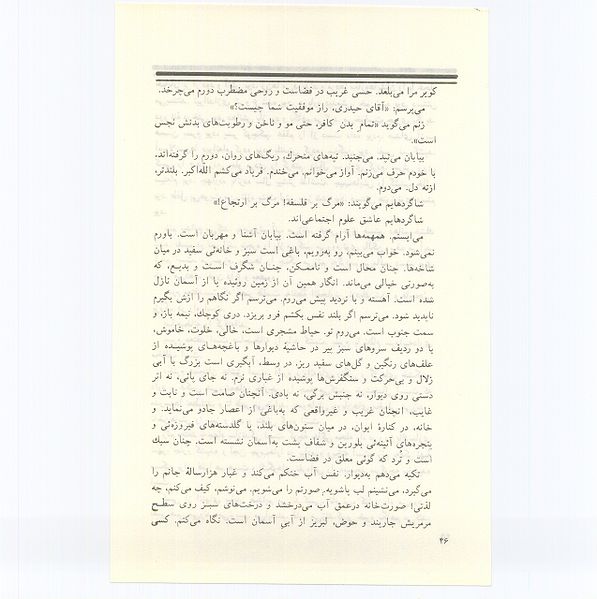 کویر مرا می‌بلعد. حسی غریب در فضاست و روحی مضطرب دورم می‌چرخد.
می‌پرسم: «آقای حیدری، راز موفقیت شما چیست؟»
زنم می‌گوید «تمام بدن کافر، حتی مو و ناخن و رطوبت‌های بدنش نجس
است».
بیابان می‌تپد. می‌جنبد. تپه‌های متحرك، ریگ‌های روان، دورم را گرفته‌اند.
با خودم حرف می‌زنم. آواز می‌خوانم. می‌خندم. فریاد می‌کشم الله‌اکبر. بلندتر،
ازته دل. می‌دوم.
شاگردهایم می‌گویند: «مرگ بر فلسفه! مرگ بر ارتجاع!»
شاگردهایم عاشق علوم اجتماعی‌اند.
می‌ایستم. همهمه‌ها آرام گرفته است. بیابان آشنا و مهربان است. باورم
نمی‌شود. خواب می‌بینم، رو به‌رویم، باغی است سبز و خانه‌ئی سفید در میان
شاخه‌ها. چنان محال است و ناممکن، چنـان شگرف اسـت و بدیـع، که
به‌صورتی خیالی می‌ماند. انگار همین آن از زمین روئیده یا از آسمان نازل
شده است. آهسته و با تردید پیش می‌روم. می‌ترسم اگر نگاهم را ازش بگیرم
ناپدید شود. می‌ترسم اگر بلند نفس بکشم فرو بریزد. دری کوچك، نیمه باز، و
سمت جنوب است. می‌روم تو. حیاط مشجری است، خالی، خلوت، خاموش،
با دو ردیف سروهای سبز پیر در حاشیهٔ دیوارها و باغچه‌هـای پوشیـده از
علف‌های رنگین و گل‌های سفید ریز. در وسط، آبگیری است بزرگ با آبی
زلال و بی‌حرکت و سنگفرش‌ها پوشیده از غباری نرم. نه جای پائی، نه اثر
دستی روی دیوار، نه جنبش برگی، نه بادی. آنچنان صامت است و ثابت و
غایب، آنچنان غریب و غیرواقعی که به‌باغی از اعصار جادو می‌نماید. و
خانه، در کنارهٔ ایوان، در میان ستون‌های بلند، با گلدسته‌های فیروزه‌ئی و
پنجره‌های آئینه‌ئی بلورین و شفاف پشت به‌آسمان نشسته است. چنان سبك
است و تُرد که گوئی معلق در فضاست.
تکیه می‌دهم به‌دیوار، نفس آب خنکم می‌کند و غبار هزارسالهٔ جانم را
می‌گیرد. می‌نشینم لب پاشویه. صورتم را می‌شویم. می‌نوشم. کیف می‌کنم، چه
لذتی! صورت‌خانه درعمق آب می‌درخشد و درخت‌های سبـز روی سطـح
مرمریش جاریند و حوض، لبریز از آبی آسمان است. نگاه می‌کنم. کسی
۴۶